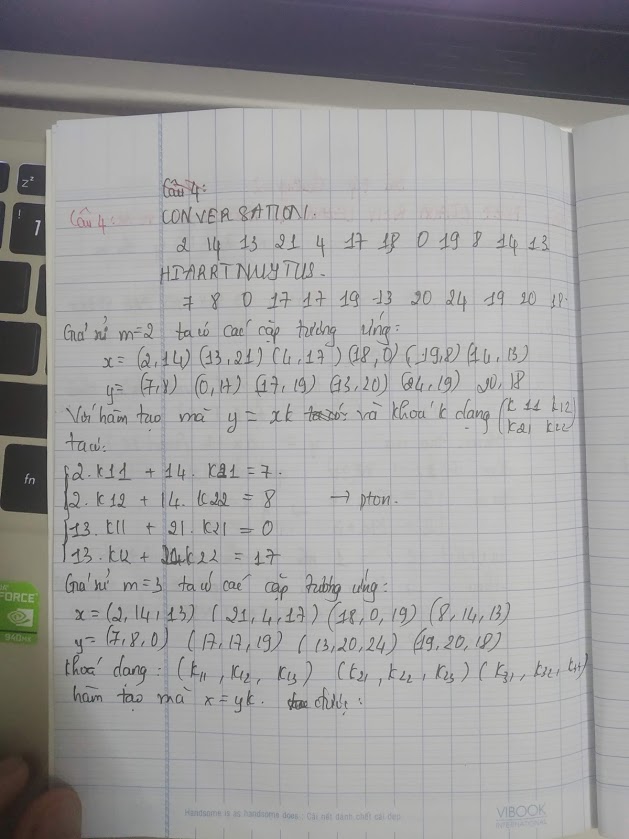 Câu 4:
Câu 4:
CONVERSATION.
2 14 13 21 4 17 18 0 19 8 14 13
HIARRTNUYTUS.
7 8 0 17 17 19 13 20 24 19 20 18
Giả sử m=2 ta có các cặp tương ứng:
x = (2,14) (13,21) (4,17) (18,0) (19,8) (14,13)
y = (7,8) (0,17) (17,19) (13,20) (24,19) 20,18
Với hàm tạo mã y = xk và khoá k dạng (k11 k12
k21 k22)
ta có:
2.k11 + 14.k21 = 7.
2.k12 + 14.k22 = 8 → pton.
13.k11 + 21.k21 = 0
13.k12 + k22 = 17
Giả sử m=3 ta có các cặp tương ứng:
x = (2,14,13) (21,4,17) (18,0,19) (8,14,13)
y = (7,8,0) (17,17,19) (13,20,24) (19,20,18)
khoá dạng: (k11, k12, k13) (k21, k22, k23) (k31, k32,
hàm tạo mã x = yk. được:
Handsome is as handsome does - Cái nết đánh chết cái đẹp
VIBOOK
INTERNATIONAL
Z
!
1
fn
FORCE
940MX